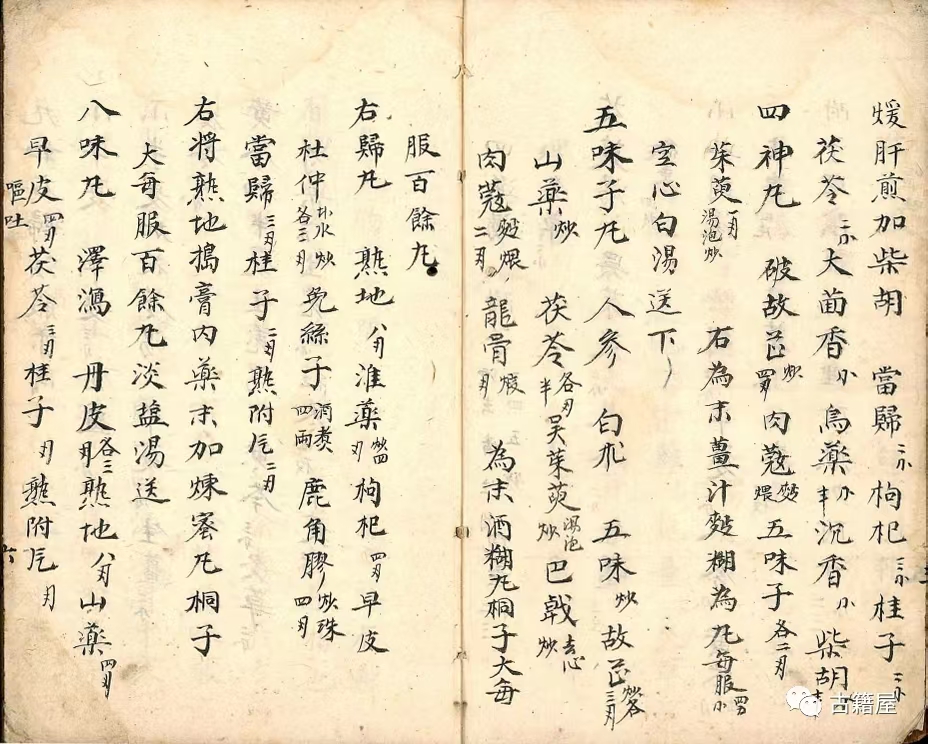 煖肝煎加柴胡 當歸二小 枸杞三小 桂子二小
茯苓二小大茴香小烏藥半小沉香小 柴胡
四神丸 破故芷炒四刄肉蔻麪煨五味子各二刄
茱萸一刄湯泡炒 右為末薑汁麪糊為丸每服四刄小
空心白湯送下
五味子丸 人參 白朮 五味炒 故芷炒各三刄
山藥炒 茯苓各刄半吴茱萸湯泡炒巴戟去心炒
肉蔻麪煨二刄 龍骨煅刄 為末酒糊丸桐子大每
服百餘丸
右歸丸 熟地八刄淮藥炒四刄枸杞四刄早皮
杜仲卜水炒各三刄兔絲子酒煑四兩鹿角膠炒珠四刄
當歸三刄桂子二刄熟附片二刄
右將熟地搗膏內藥末加煉蜜丸桐子
大每服百餘丸淡盐湯送
八味丸 澤瀉 丹皮各三刄熟地八刄山藥四刄
早皮四刄茯苓三刄桂子刄熟附片刄
嘔吐
六
古籍屋